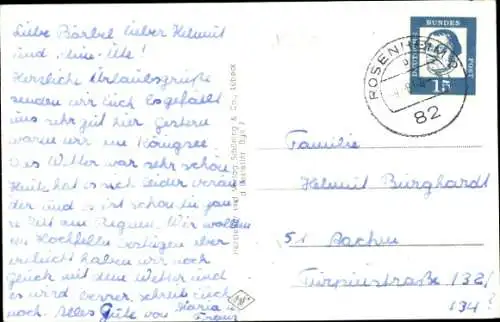 Liebe Bärbel lieber Helmut
und Ute!
Herzliche Urlaubsgrüße
senden wir Euch Es gefällt
uns sehr gut hier Gestern
waren wir am Königsee
Das Wetter war sehr schön
Heute hat es sich leider verän
der und es ist schon die ganz
e Zeit am Regnen. Wir wollten
Hochfelln
vielleicht haben wir noch
Glück mit dem Wetter und
es wird besser, schreib Euch
noch. Alles Gute von Maria u
Franz
Schöning & Co., Lübeck
ROSENHEIM
82
DEUTSCHE
BUNDES
POST
15
Familie
Helmut Burghardt
51 Aachen
Tirpitzstraße 132/
134